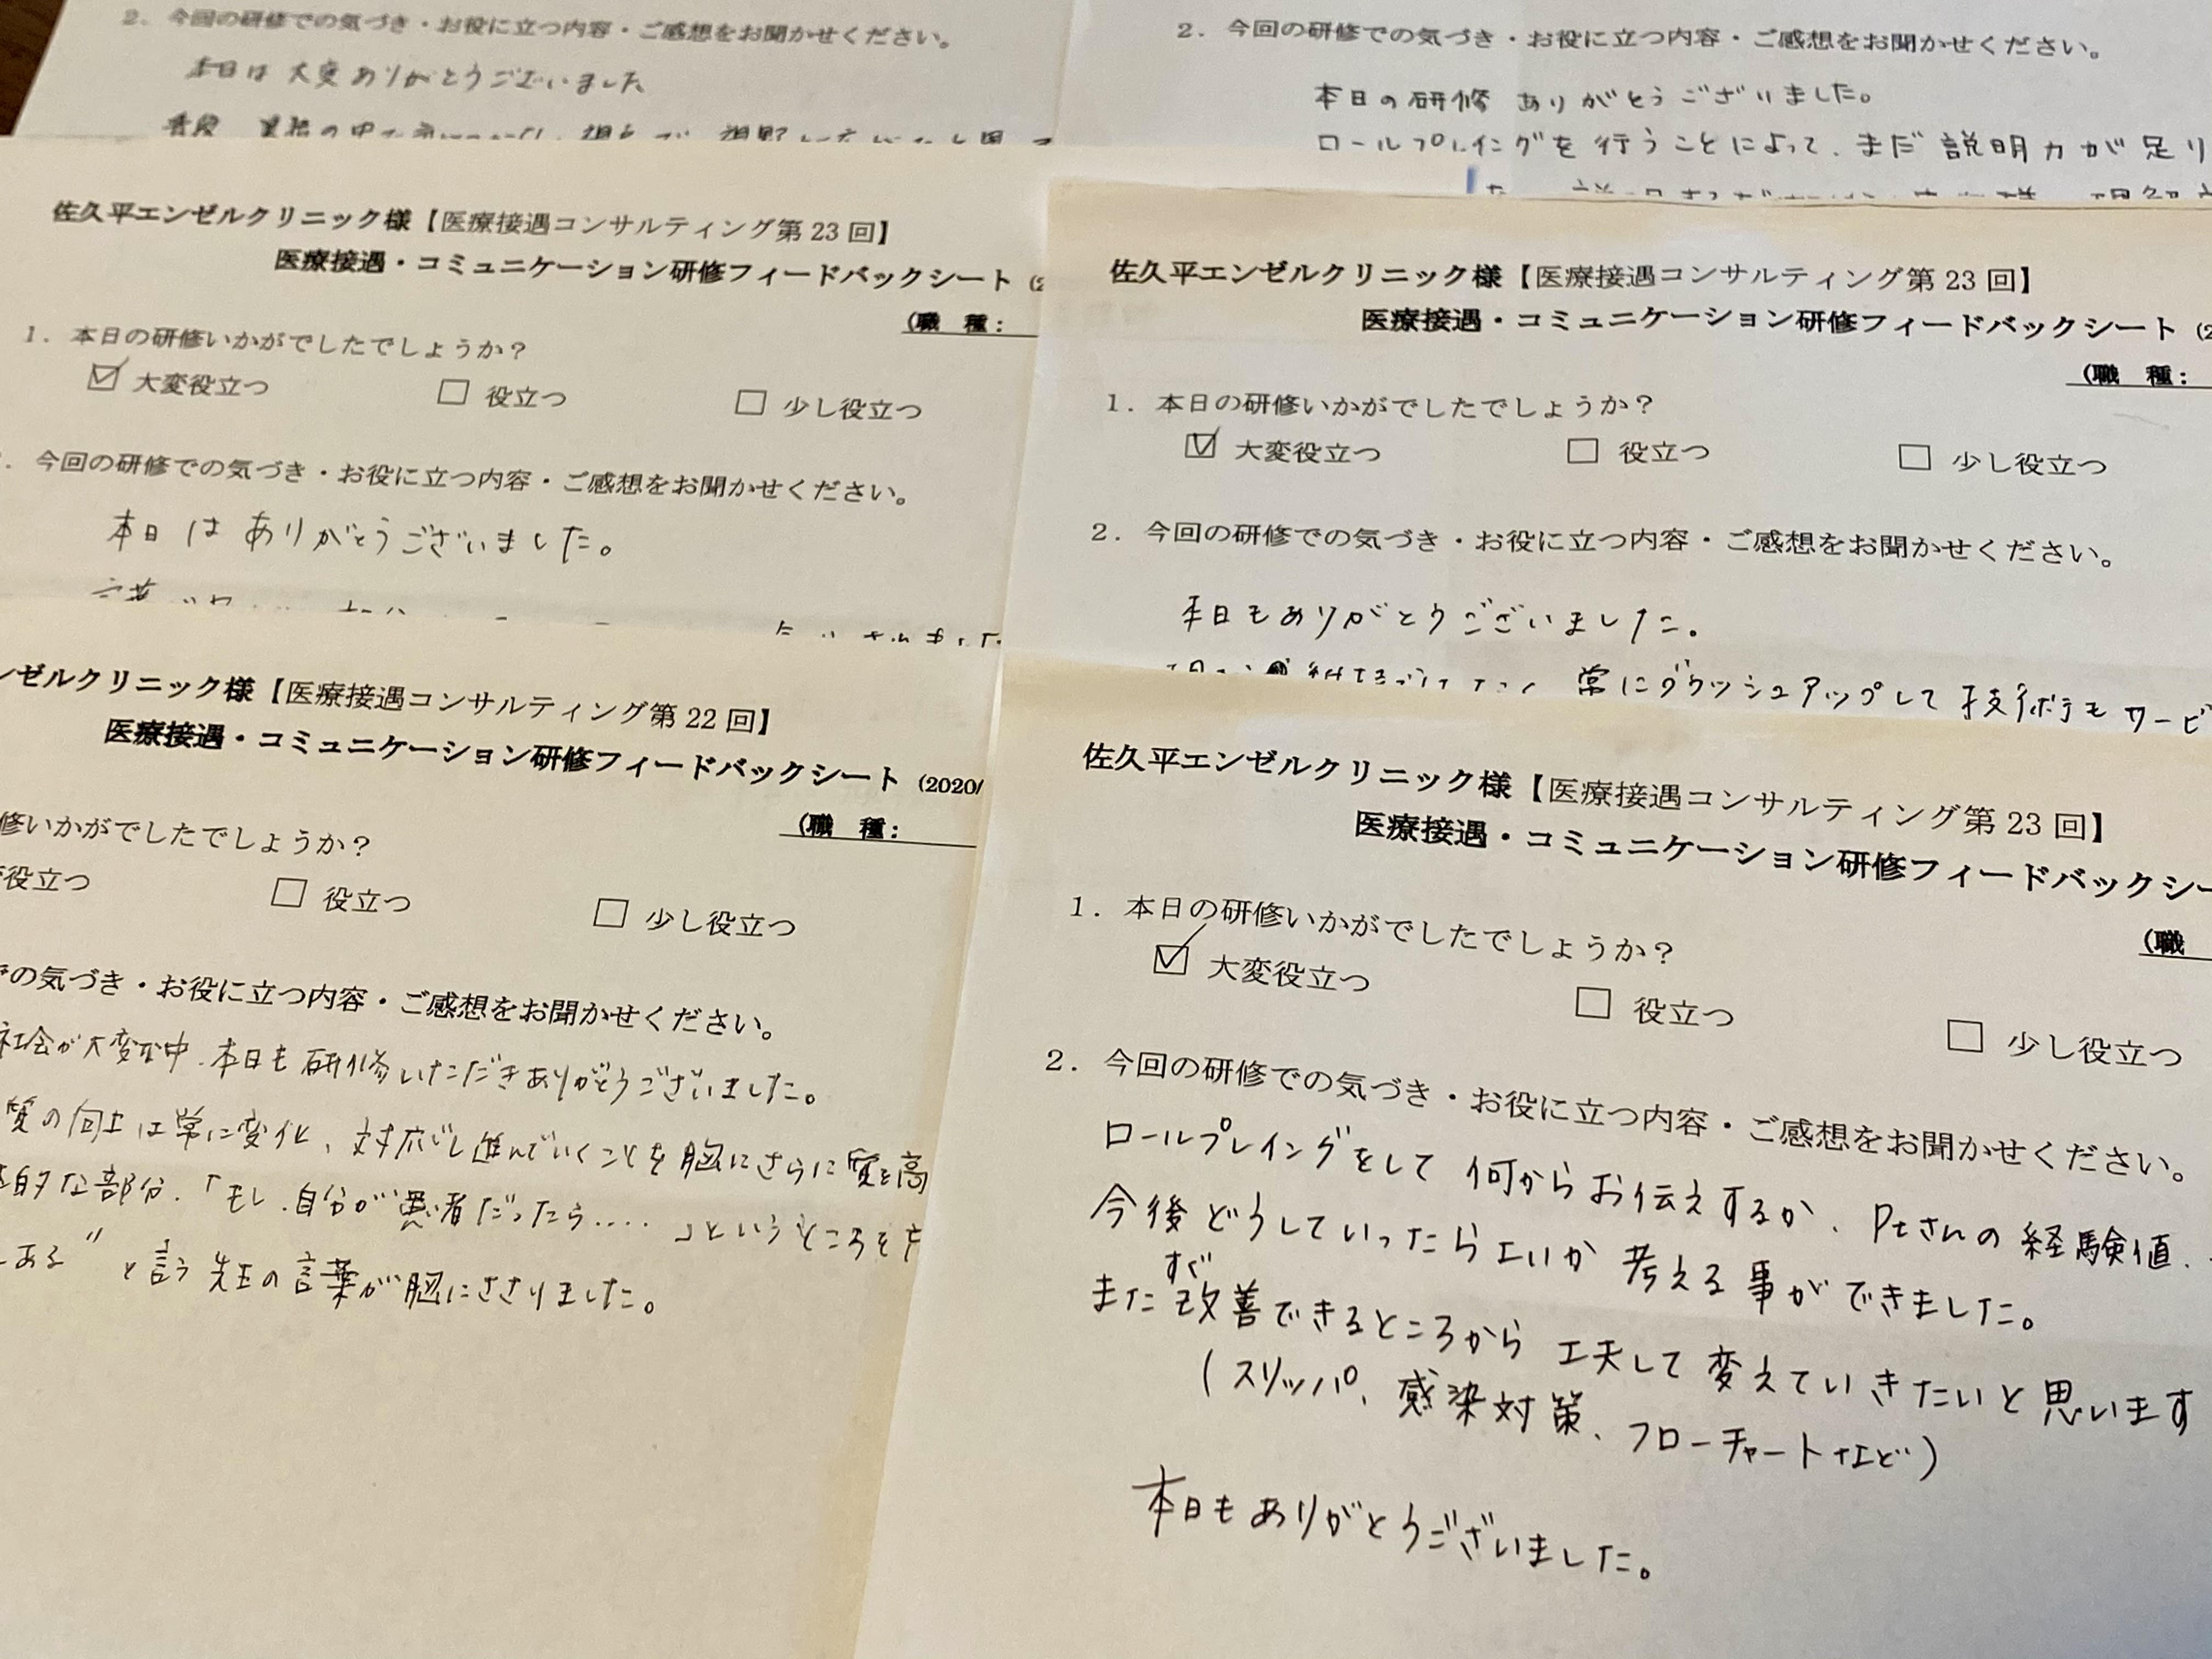 2. 今回の研修での気づき・お役に立つ内容・ご感想をお聞かせください。
本日は大変ありがとうございました
2. 今回の研修での気づき・お役に立つ内容・ご感想をお聞かせください。
本日の研修ありがとうございました。
ロールプレイングを行うことによって、まだ説明力が足り
佐久平エンゼルクリニック様【医療接遇コンサルティング第23回】
医療接遇・コミュニケーション研修フィードバックシート
(職 種:
1. 本日の研修いかがでしたでしょうか?
☑ 大変役立つ □ 役立つ □ 少し役立つ
. 今回の研修での気づき・お役に立つ内容・ご感想をお聞かせください。
本日はありがとうございました。
佐久平エンゼルクリニック様【医療接遇コンサルティング第23回】
医療接遇・コミュニケーション研修フィードバックシート (2
(職 種:
1. 本日の研修いかがでしたでしょうか?
☑ 大変役立つ □ 役立つ □ 少し役立つ
2. 今回の研修での気づき・お役に立つ内容・ご感想をお聞かせください。
本日もありがとうございました。
常にブラッシュアップして技術もサービ
ンゼルクリニック様【医療接遇コンサルティング第22回】
医療接遇・コミュニケーション研修フィードバックシート (2020/
(職 種:
修いかがでしたでしょうか?
役立つ □ 役立つ □ 少し役立つ
の気づき・お役に立つ内容・ご感想をお聞かせください。
社会が大変な中、本日も研修いただきありがとうございました。
質の向上は常に変化、対応し進んでいくことを胸にさらに質を高
的な部分、「もし、自分が患者だったら....」というところを
ある〃と言う先生の言葉が胸にささりました。
佐久平エンゼルクリニック様【医療接遇コンサルティング第23回】
医療接遇・コミュニケーション研修フィードバックシー
(職
1. 本日の研修いかがでしたでしょうか?
☑ 大変役立つ □ 役立つ □ 少し役立つ
2. 今回の研修での気づき・お役に立つ内容・ご感想をお聞かせください。
ロールプレイングをして何からお伝えするか、Ptさんの経験値、
今後どうしていったらよいか考える事ができました。
またすぐ改善できるところから工夫して変えていきたいと思います
(スリッパ、感染対策、フローチャートなど)
本日もありがとうございました。